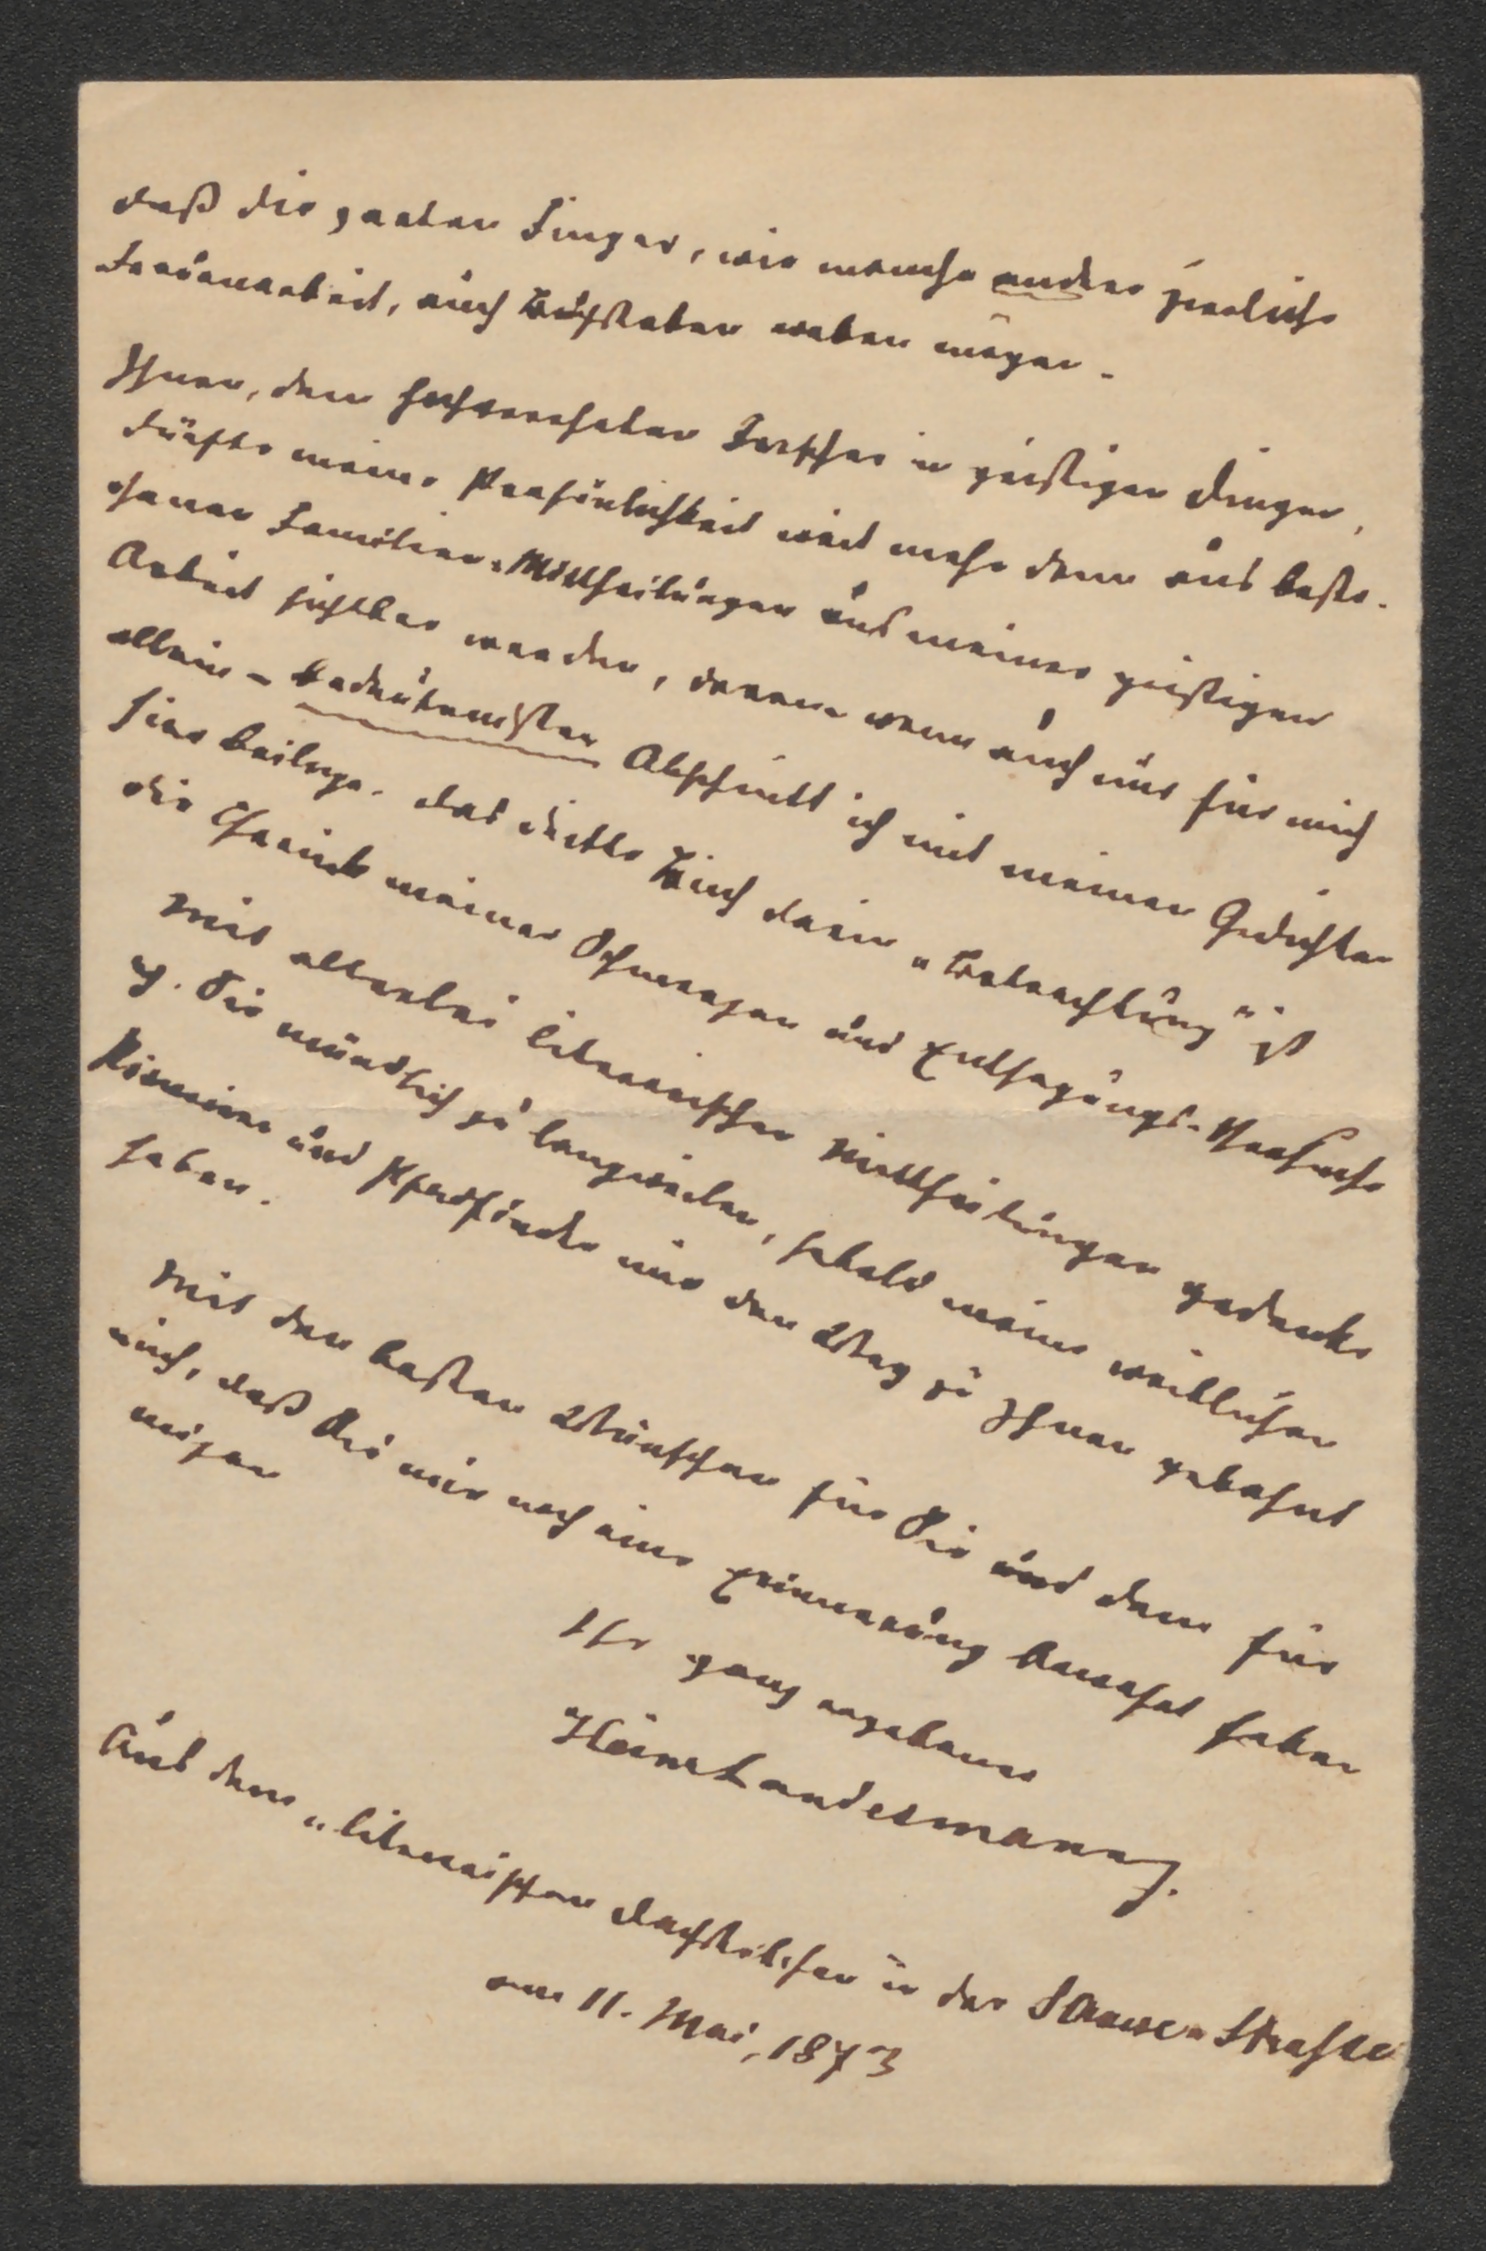 daß die zarten Finger, wie manche andere zierliche
Frauenarbeit, auch Buchstaben weben mögen.
Ihnen, dem hochverehrten Forscher in geistigen Dingen,
dürfte meine Persönlichkeit weit mehr denn aus beste-
henen Familien-Mittheilungen aus meiner geistigen
Arbeit sichtbar werden, deren wenn auch nur für mich
allein - bedeutensten Abschnitt ich mit meinen Gedichten
hier beilege. Das dritte Buch darin „Betrachtung" ist
die Chronik meiner Schmerzen und Entsagungs-Versuche
Mit allerlei literarischen Mittheilungen gedenke
ich Sie mündlich zu langweilen, sobald meine weiblichen
Pioniere und Pfadfinder mir den Weg zu Ihnen gebahnt
haben.
Mit den besten Wünschen für Sie und dem für
mich, daß Sie mir noch eine Erinnerung bewahrt haben
mögen
Ihr ganz ergebener
Heinr Landesmann.
Aus dem „literarischen Dachstübchen in der Strasse
am 11. Mai, 1873